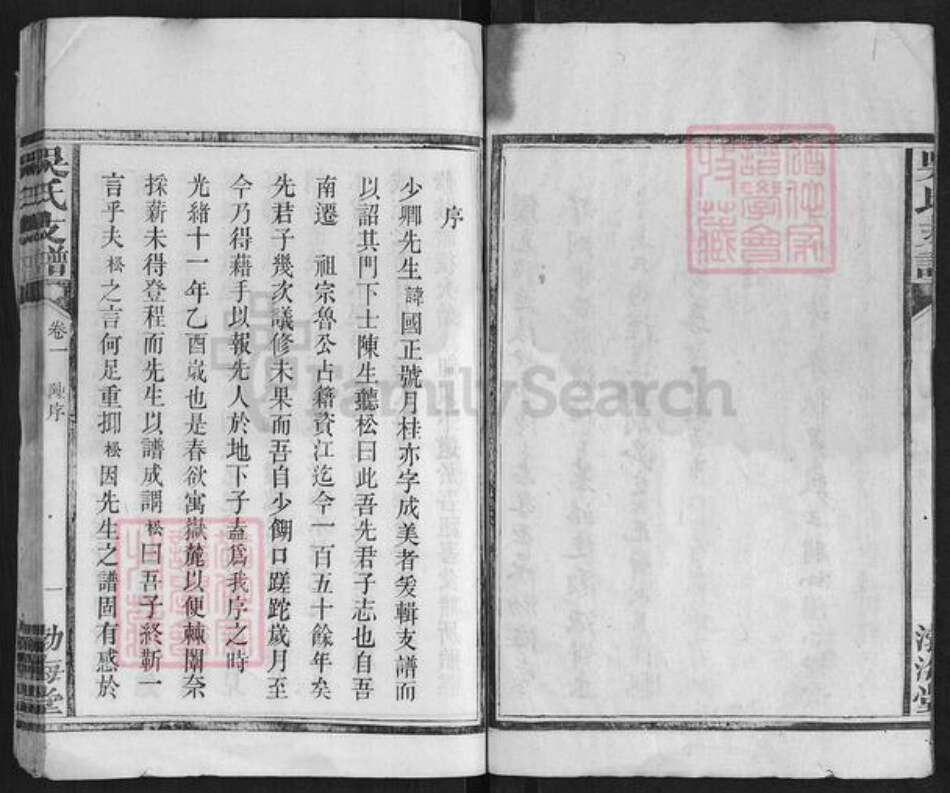 序
少卿先生諱國正號月桂亦字成美者爰輯支譜而
以詔其門下士陳生聽松曰此吾先君子志也自吾
南遷 祖宗魯公占籍資江迄今一百五十餘年矣
先君子幾次議修未果而吾自少餬口蹉跎歲月至
今乃得藉手以報先人於地下子盍為我序之時
光緒十一年乙酉歲也是春欲寓嶽麓以便棘闈奈
採薪未得登程而先生以譜成謂松曰吾子終靳一
言乎夫松之言何足重抑松因先生之譜固有感於
吳氏支譜
卷一 陳序
一
渤海堂
吳氏支譜
渤海堂
收藏
譜學會
FamilySearch